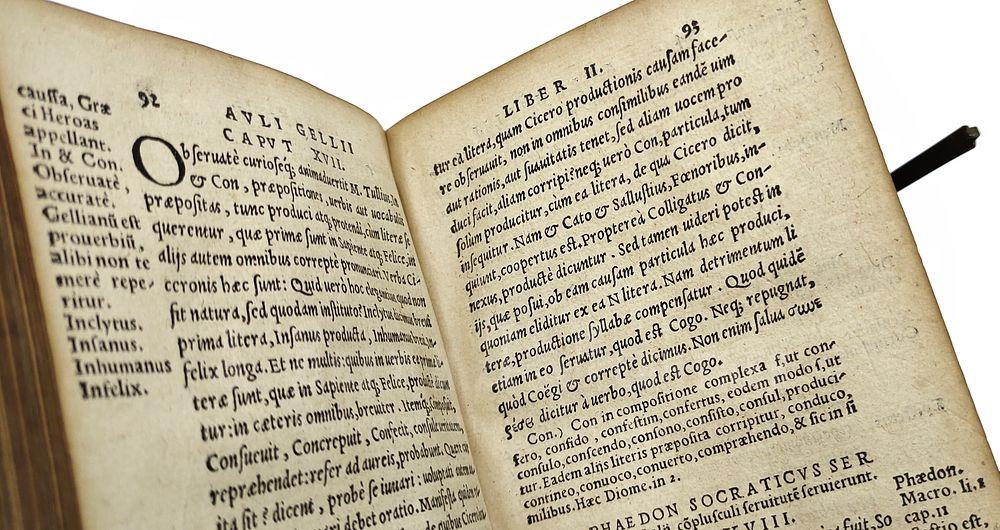 caussa, Græ
ci Heroas
appellant.
In & Con.
Obseruatè,
accuratè.
Gellianũ est
prouerbiũ,
alibi non te
merè repe-
ritur.
Inclytus.
Insanus.
Inhumanus
Infelix.
92
AVLI GELLII
CAPVT XVII.
Obseruatè curioseq́; animaduertit M. Tullius, In
& Con, præpositiones, uerbis aut uocabulis
præpositas, tunc produci atq; protendi, cum literæ se
querentur, quæ primæ sunt in Sapiente atq; Felice, in
alijs autem omnibus correptè pronunciari. Verba Ci-
ceronis hæc sunt: Quid uerò hoc elegantius, quod non
fit natura, sed quodam instituto? Inclytus dicimus breui
prima litera, Insanus producta, Inhumanus breui, in-
felix longa. Et ne multis: quibus in uerbis eæ primæ li-
teræ sunt, quæ in Sapiente atq; Felice, productè dicun
tur: in cæteris omnibus, breuiter. Itemq; Composuit,
Consueuit, Concrepuit, Confecit, consule ueritatem,
repræhendet: refer ad aureis, probabunt. Quære cur
ita sit? dicent, probè se iuuari: uoluptati autem
debet oratio. Manifesta quidem
93
LIBER II.
tur ea litera, quam Cicero productionis causam face-
re obseruuit, non in omnibus consimilibus eandẽ uim
aut rationis, aut suauitatis tenet, sed aliam uocem pro
duci facit, aliam corripi: neq; uerò Con, particula, tum
solum producitur, cum ea litera, de qua Cicero dicit,
insequitur. Nam & Cato & Sallustius, Fœnoribus, in-
quiunt, coopertus est. Propterea Colligatus & Con-
nexus, productè dicuntur. Sed tamen uideri potest in
ijs, quæ posui, ob eam causam particula hæc produci,
quoniam eliditur ex ea N litera. Nam detrimentum li
teræ, productione syllabæ compensatur. Quod quidẽ
etiam in eo seruatur, quod est Cogo. Neq; repugnat,
quòd Coëgi & correptè dicimus. Non enim salua
dicitur à uerbo, quod est Cogo.
Con.) Con in compositione complexa f, ut con-
fero, confido, confestim, confertus, eodem modo s, ut
consulo, conscendo, consono, consisto, consul, produci-
tur. Eadem alijs literis præposita corripitur, conduco,
contineo, conuoco, conuerto, compræhendo, & sic in si
milibus. Hæc Diome. in 2.
PHAEDON SOCRATICVS SER
cõpusculi seruitutẽ seruierunt.
XVIII.
Phædon.
Macro. li. 1
cap. 11